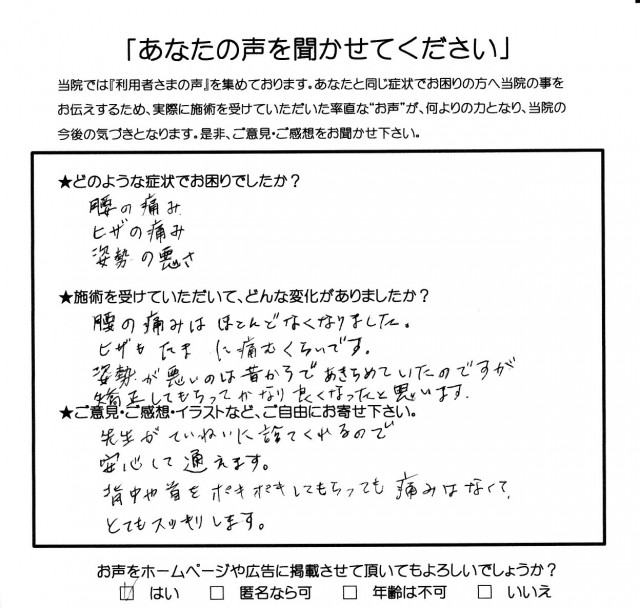 「あなたの声を聞かせてください」
当院では『利用者さまの声』を集めております。あなたと同じ症状でお困りの方へ当院の事を
お伝えするため、実際に施術を受けていただいた率直な“お声”が、何よりの力となり、当院の
今後の気づきとなります。是非、ご意見・ご感想をお聞かせ下さい。
★どのような症状でお困りでしたか？
腰の痛み
ヒザの痛み
姿勢の悪さ
★施術を受けていただいて、どんな変化がありましたか？
腰の痛みは ほとんどなくなりました。
ヒザも たまに痛むくらいです。
姿勢が悪いのは昔からであきらめていたのですが
矯正してもらってかなり良くなったと思います。
★ご意見・ご感想・イラストなど、ご自由にお寄せ下さい。
先生がていねいに診てくれるので
安心して通えます。
背中や首をポキポキしてもらっても痛みはなくて、
とてもスッキリします。
お声をホームページや広告に掲載させて頂いてもよろしいでしょうか？
☑ はい □ 匿名なら可 □ 年齢は不可 □ いいえ